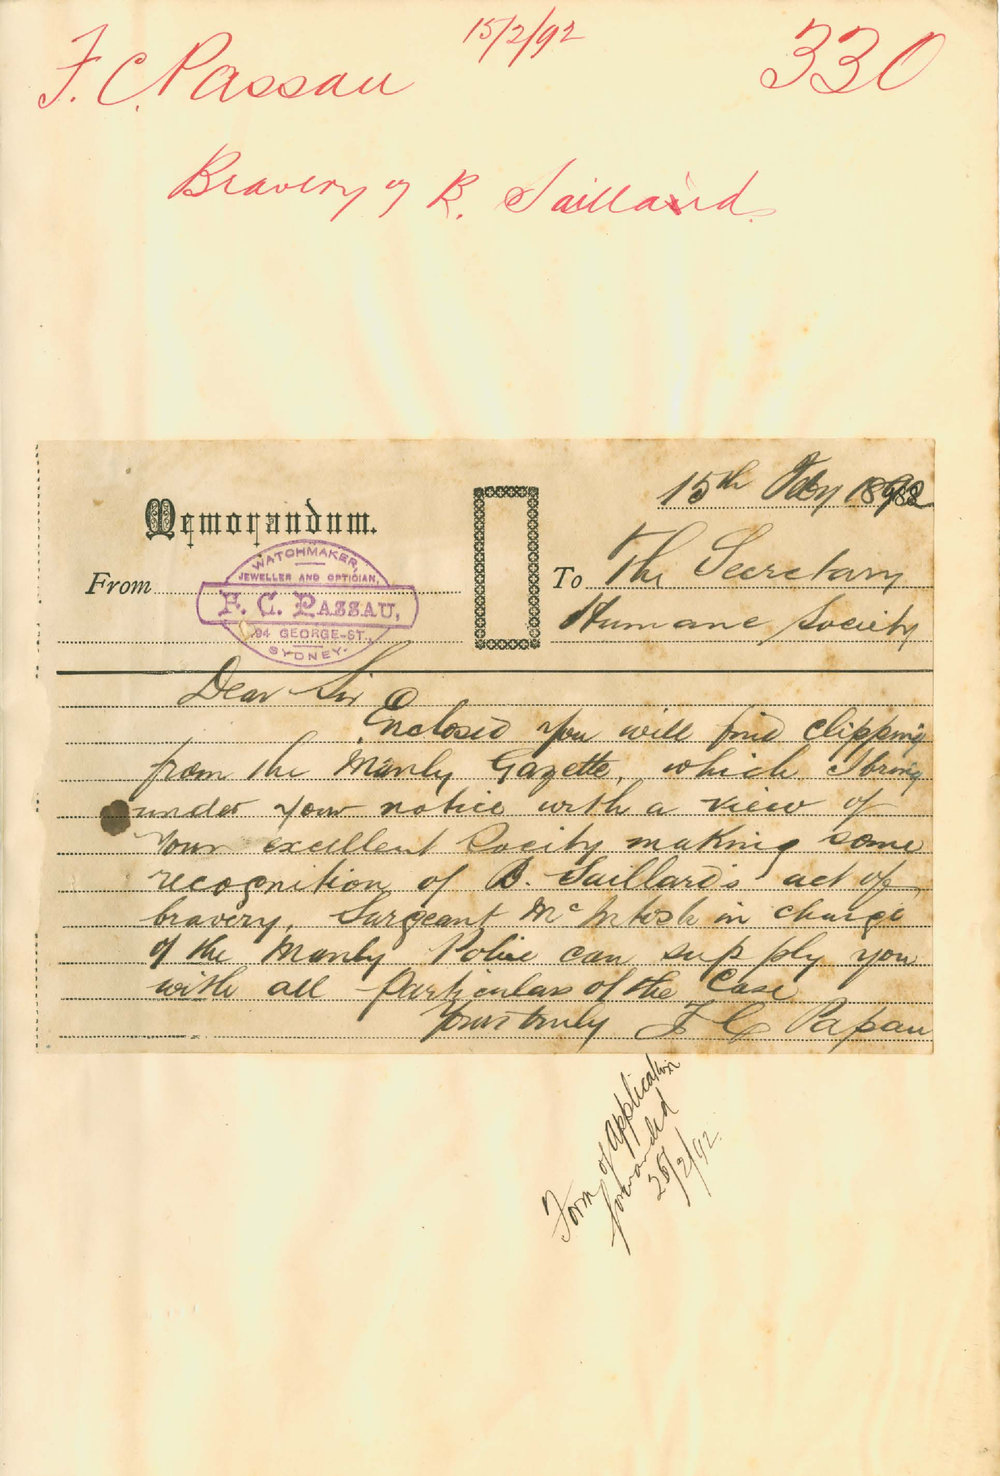 15/2/92
F. C. Passau
330
Bravery of B. Saillard.
15th Feby 1892
Memorandum.
WATCHMAKER,
JEWELLER AND OPTICIAN,
From
F. C. PASSAU,
94 GEORGE-ST.,
SYDNEY.
To The Secretary
Humane Society
Dear Sir
Enclosed you will find clipping
from the Manly Gazette, which I bring
under your notice with a view of
Your excellent Society making some
recognition of B. Saillard's act of
bravery, Sargeant McIntosh in charge
of the Manly Police can supply you
with all particulars of the Case
Yours truly F C Passau
Form of application
forwarded
25/2/92.